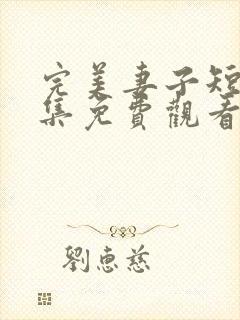 完美妻子短
集免費觀看
劉惠慈